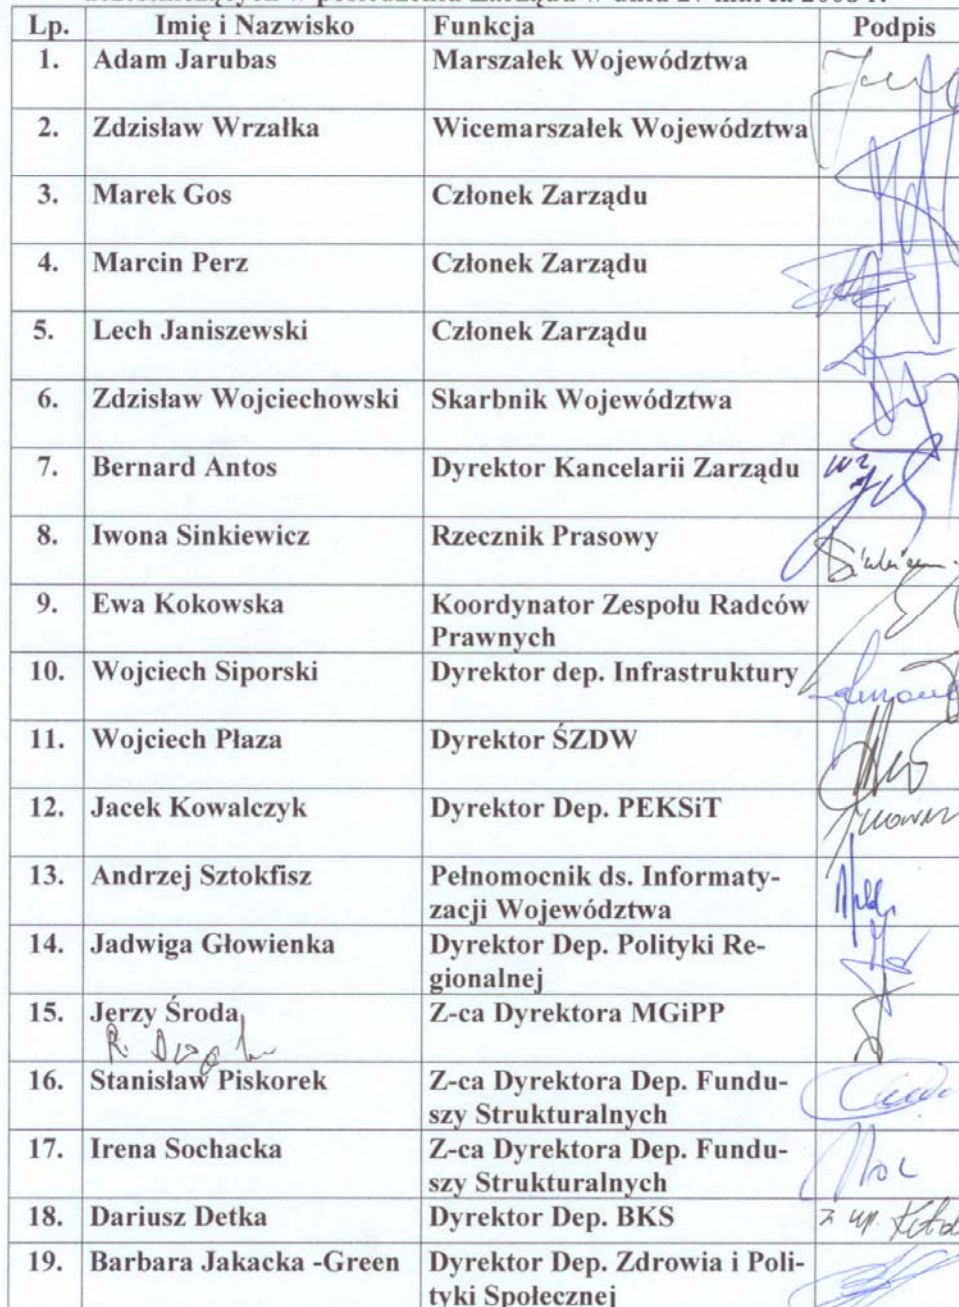 uczestniczących w posiedzeniu Zarządu w dniu 27 marca 2008 r.
Lp. Imię i Nazwisko Funkcja Podpis
1. Adam Jarubas Marszałek Województwa
2. Zdzisław Wrzałka Wicemarszałek Województwa
3. Marek Gos Członek Zarządu
4. Marcin Perz Członek Zarządu
5. Lech Janiszewski Członek Zarządu
6. Zdzisław Wojciechowski Skarbnik Województwa
7. Bernard Antos Dyrektor Kancelarii Zarządu wz
8. Iwona Sinkiewicz Rzecznik Prasowy
9. Ewa Kokowska Koordynator Zespołu Radców
Prawnych
10. Wojciech Siporski Dyrektor dep. Infrastruktury
11. Wojciech Płaza Dyrektor ŚZDW
12. Jacek Kowalczyk Dyrektor Dep. PEKSiT
13. Andrzej Sztokfisz Pełnomocnik ds. Informaty-
zacji Województwa
14. Jadwiga Głowienka Dyrektor Dep. Polityki Re-
gionalnej
15. Jerzy Środa Z-ca Dyrektora MGiPP
16. Stanisław Piskorek Z-ca Dyrektora Dep. Fundu-
szy Strukturalnych
17. Irena Sochacka Z-ca Dyrektora Dep. Fundu-
szy Strukturalnych
18. Dariusz Detka Dyrektor Dep. BKS z up.
19. Barbara Jakacka -Green Dyrektor Dep. Zdrowia i Poli-
tyki Społecznej